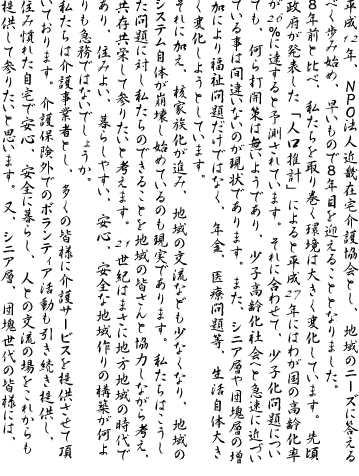 平成12年、NPO法人近畿在宅介護協会とし、地域のニーズに答える
べく歩み始め、早いもので8年目を迎えることとなりました。
8年前と比べ、私たちを取り巻く環境は大きく変化しています。先頃
政府が発表した「人口推計」によると平成27年にはわが国の高齢化率
が26%に達すると予測されています。それに合わせて、少子化問題につい
ても、何ら打開策は無いようであり、少子高齢化社会へと急速に近づい
ている事は間違いないのが現状であります。また、シニア層や団塊層の増
加により福祉問題だけではなく、年金、医療問題等、生活自体大き
く変化しようとしています。
それに加え、核家族化が進み、地域の交流なども少なくなり、地域の
システム自体が崩壊し始めているのも現実であります。私たちはこうし
た問題に対し私たちのできることを地域の皆さんと協力しながら考え、
共存共栄して参りたいと考えます。21世紀はまさに地方地域の時代で
あり、住みよい、暮らしやすい、安心、安全な地域作りの構築が何よ
りも急務ではないでしょうか。
私たちは介護事業者とし、多くの皆様に介護サービスを提供させて頂
いております。介護保険外でのボランティア活動も引き続き提供し、
住み慣れた自宅で安心、安全に暮らし、人との交流の場をこれからも
提供して参りたいと思います。又、シニア層、団塊世代の皆様には、